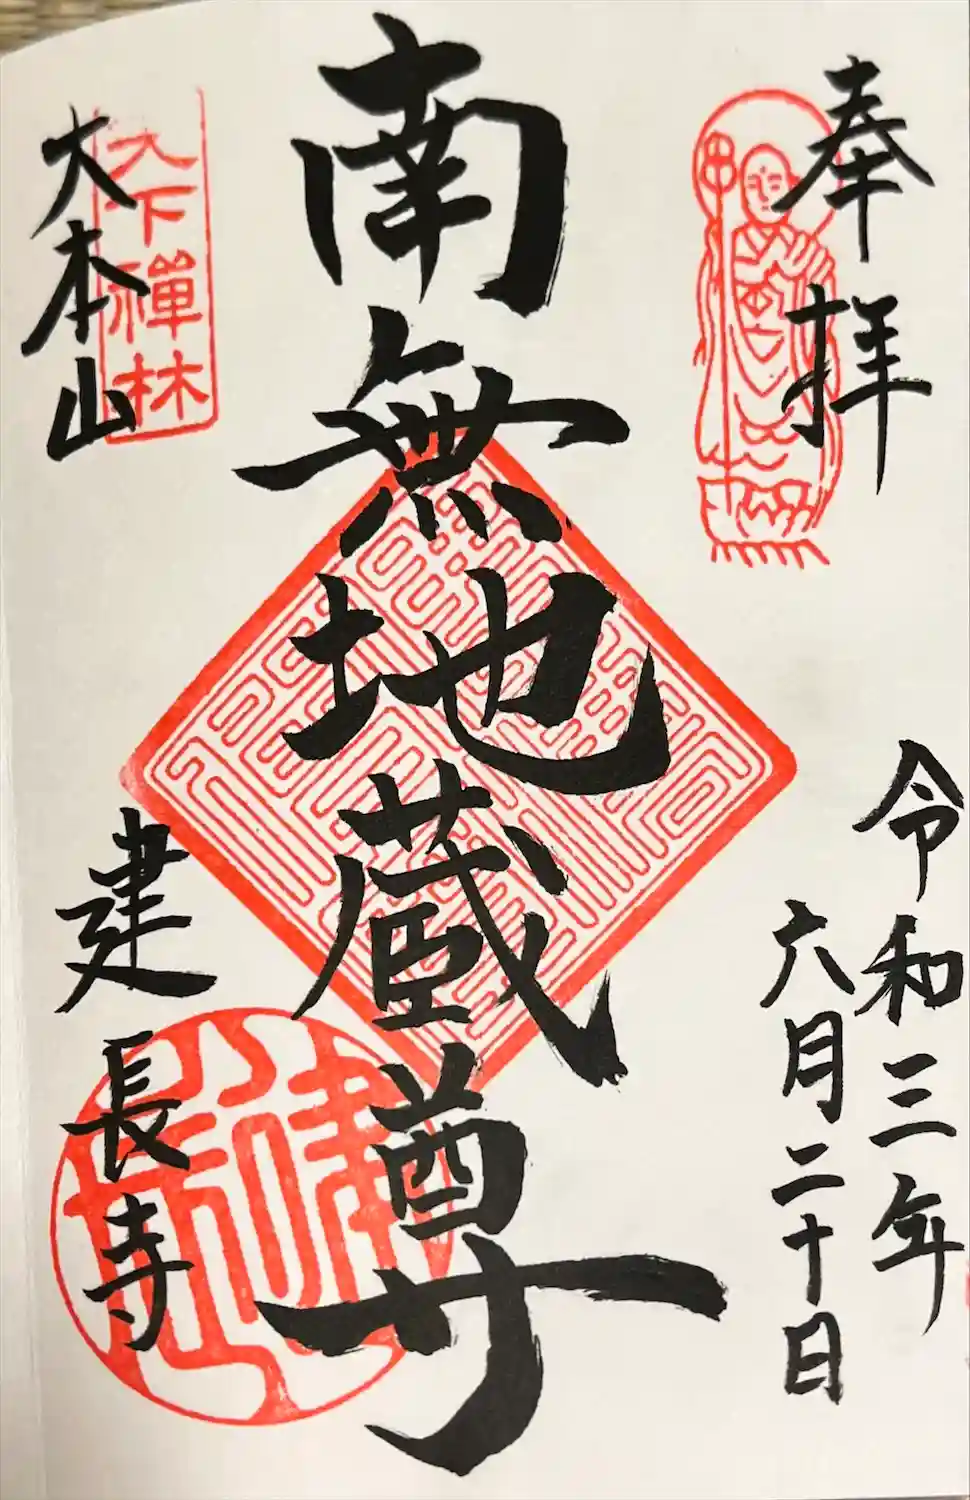 奉拝
令和三年
六月二十日
南無地蔵尊
大本山
建長寺
天下禅林